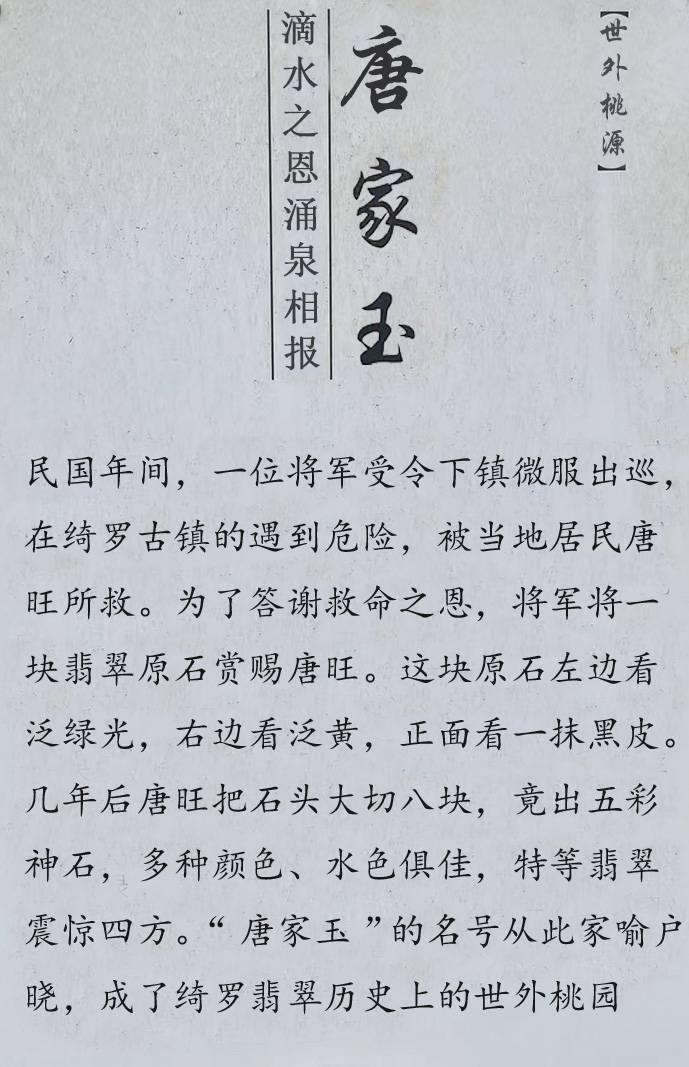 【世外桃源】
唐家玉
滴水之恩涌泉相报
民国年间，一位将军受令下镇微服出巡，
在绮罗古镇的遇到危险，被当地居民唐
旺所救。为了答谢救命之恩，将军将一
块翡翠原石赏赐唐旺。这块原石左边看
泛绿光，右边看泛黄，正面看一抹黑皮。
几年后唐旺把石头大切八块，竟出五彩
神石，多种颜色、水色俱佳，特等翡翠
震惊四方。“唐家玉”的名号从此家喻户
晓，成了绮罗翡翠历史上的世外桃园